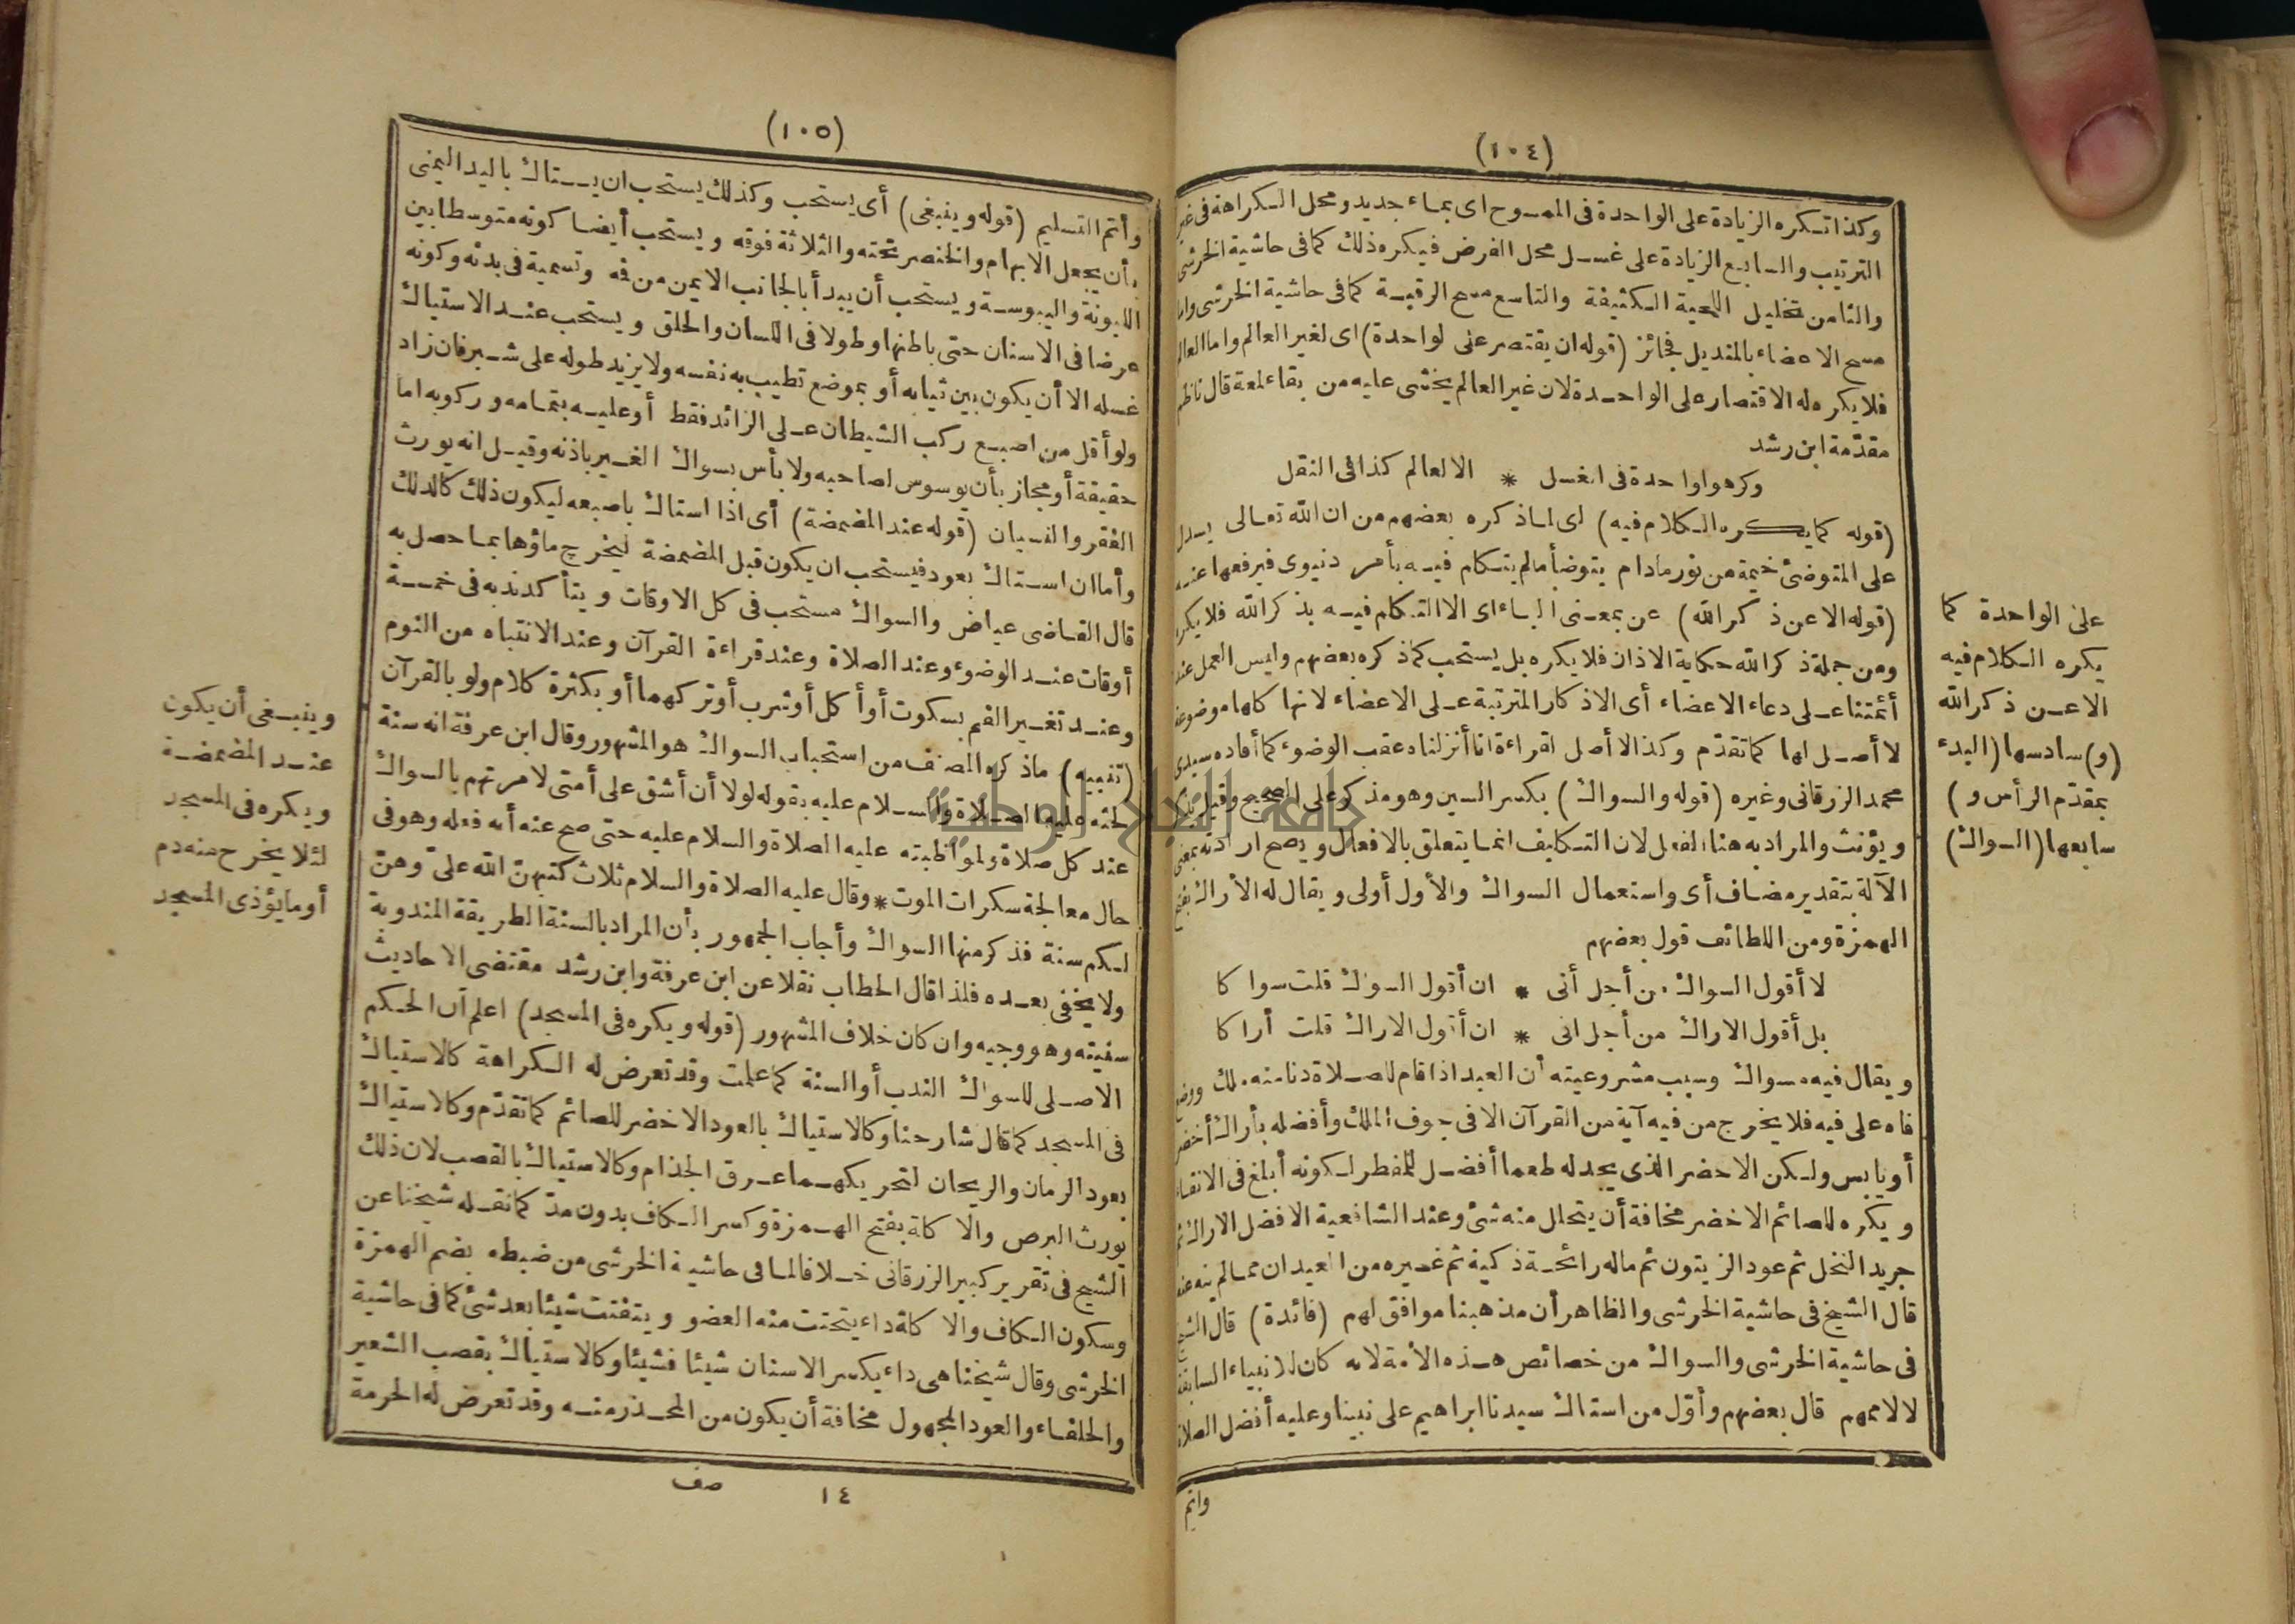 (١٠٤)
وكذا تكره الزيادة على الواحدة فى الممسوح اى بماء جديد ومحل الكراهة فى غير
الترتيب والسابع الزيادة على غسل محل الفرض فيكره ذلك كما فى حاشية الخرشى
والثامن تخليل اللحية الكثيفة والتاسع مسح الرقبة كما فى حاشية الخرشى واما
مسح الاعضاء بالمنديل فجائز (قوله ان يقتصر على لواحدة) اى لغير العالم واما العالم
فلا يكره له الاقتصار على الواحدة لان غير العالم يخشى عليه من بقاء لمعة قال ناظم
مقدّمة ابن رشد
وكرهوا واحدة فى الغسل * الا لعالم كذا فى النقل
(قوله كما يكره الكلام فيه) اى لما ذكره بعضهم من ان الله تعالى يسدل
على المتوضئ خيمة من نور مادام يتوضأ مالم يتكلم فيه بأمر دنيوى فيرفعها عنه
(قوله الا عن ذكر الله) عن بمعنى الباء اى الا التكلم فيه بذكر الله فلا يكره
ومن جملة ذكر الله حكاية الاذان فلا يكره بل يستحب كما ذكره بعضهم وليس العمل عند
أئمتنا على دعاء الاعضاء أى الاذكار المترتبة على الاعضاء لانها كلها موضوعة
لا أصل لها كما تقدّم وكذا لا أصل لقراءة انا أنزلناه عقب الوضوء كما أفاده سيدى
محمد الزرقانى وغيره (قوله والسواك) بكسر السين وهو مذكر على الصحيح وقيل يذكر
ويؤنث والمراد به هنا الفعل لان التكليف انما يتعلق بالافعال ويصح ارادته بمعنى
الآلة بتقدير مضاف أى واستعمال السواك والأول أولى ويقال له الأراك بفتح
الهمزة ومن اللطائف قول بعضهم
لا أقول السواك من أجل أنى * ان أقول السواك قلت سواكا
بل أقول الاراك من أجل انى * ان أقول الاراك قلت أراكا
ويقال فيه مسواك وسبب مشروعيته أن العبد اذا قام للصلاة دنا منه ملك ووضع
فاه على فيه فلا يخرج من فيه آية من القرآن الا فى جوف الملك وأفضله بأراك أخضر
أو يابس ولكن الاخضر الذى يجد له طعما أفضل للمفطر لكونه أبلغ فى الانقاء
ويكره للصائم الاخضر مخافة أن يتحلل منه شئ وعند الشافعية الافضل الاراك ثم
جريد النخل ثم عود الزيتون ثم ماله رائحة ذكية ثم غيره من العيدان ممالم ينه عنه
قال الشيخ فى حاشية الخرشى والظاهر أن مذهبنا موافق لهم (فائدة) قال الشيخ
فى حاشية الخرشى والسواك من خصائص هذه الأمة لانه كان للانبياء السابقة
لا لاممهم قال بعضهم وأوّل من استاك سيدنا ابراهيم على نبينا وعليه أفضل الصلاة
واتم
على الواحدة كما
يكره الكلام فيه
الا عن ذكر الله
(و) سادسها (البدء
بمقدّم الرأس و)
سابعها (السواك)
(١٠٥)
وأتم التسليم (قوله وينبغى) أى يستحب وكذلك يستحب ان يستاك باليد اليمنى
بأن يجعل الابهام والخنصر تحته والثلاثة فوقه ويستحب أيضا كونه متوسطا بين
الليونة واليبوسة ويستحب أن يبدأ بالجانب الايمن من فمه وتسمية فى بدئه وكونه
عرضا فى الاسنان حتى باطنها وطولا فى اللسان والحلق ويستحب عند الاستياك
غسله الا أن يكون بين ثيابه أو بموضع تطيب به نفسه ولا يزيد طوله على شبر فان زاد
ولو أقل من اصبع ركب الشيطان على الزائد فقط أو عليه بتمامه وركوبه اما
حقيقة أو مجاز بأن يوسوس لصاحبه ولا بأس بسواك الغير باذنه وقيل انه يورث
الفقر والنسيان (قوله عند المضمضة) أى اذا استاك باصبعه ليكون ذلك كالدلك
وأما ان استاك بعود فيستحب ان يكون قبل المضمضة ليخرج ماؤها بما حصل به
قال القاضى عياض والسواك مستحب فى كل الاوقات ويتأكد ندبه فى خمسة
أوقات عند الوضوء وعند الصلاة وعند قراءة القرآن وعند الانتباه من النوم
وعند تغير الفم بسكوت أو أكل أو شرب أو تركهما أو بكثرة كلام ولو بالقرآن
(تنبيه) ماذكره المصنف من استحباب السواك هو المشهور وقال ابن عرفة انه سنة
لحثه عليه الصلاة والسلام عليه بقوله لولا أن أشق على أمتى لامرتهم بالسواك
عند كل صلاة ولمواظبته عليه الصلاة والسلام عليه حتى صح عنه أنه فعله وهو فى
حال معالجة سكرات الموت * وقال عليه الصلاة والسلام ثلاث كتبهنّ الله علىّ وهنّ
لكم سنة فذكر منها السواك وأجاب الجمهور بأن المراد بالسنة الطريقة المندوبة
ولا يخفى بعده فلذا قال الحطاب نقلا عن ابن عرفة وابن رشد مقتضى الاحاديث
سنيته وهو وجيه وان كان خلاف المشهور (قوله ويكره فى المسجد) اعلم أن الحكم
الاصلى للسواك الندب أو السنة كما علمت وقد تعرض له الكراهة كالاستياك
فى المسجد كما قال شارحنا وكالاستياك بالعود الاخضر للصائم كما تقدّم وكالاستياك
بعود الرمان والريحان لتحريكهما عرق الجذام وكالاستياك بالقصب لان ذلك
يورث البرص والاكلة بفتح الهمزة وكسر الكاف بدون مدّ كما نقله شيخنا عن
الشيخ فى تقرير كبير الزرقانى خلافا لما فى حاشية الخرشى من ضبطه بضم الهمزة
وسكون الكاف والاكلة داء يتحتت منه العضو ويتفتت شيئا بعد شئ كما فى حاشية
الخرشى وقال شيخنا هى داء يكسر الاسنان شيئا فشيئا وكالاستياك بقصب الشعير
والحلفاء والعود المجهول مخافة أن يكون من المحذر منه وقد تعرض له الحرمة
١٤ صف
وينبغى أن يكون
عند المضمضة
ويكره فى المسجد
لئلا يخرج منه دم
أو ما يؤذى المسجد
جامعة النجاح الوطنية